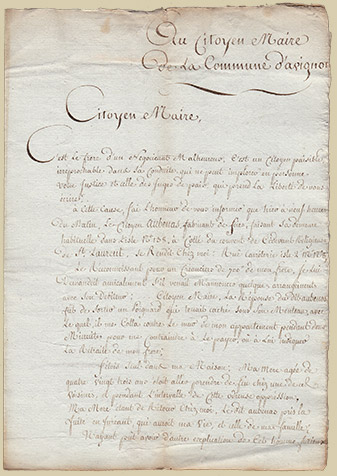 Au Citoyen Maire
De La Commune d'avignon
Citoyen Maire,
C'est le frere d'un Négociant Malheureux, C'est un Citoyen paisible
irreprochable dans Sa Conduite, qui ne peut implorer en personne
votre Justice et celle des Juges de paix, qui prend la Liberté de vous
écrire;
à Cette Cause, j'ai L'honneur de vous informer que hier à neuf heures
du Matin, Le Citoyen Aubenas, fabricant de fer, faisant Sa demeure
habituelle dans L'isle N° 158, à Côté du couvent des Religieuses
de St Laurent, Se Rendit Chez moi: Rue
Le Reconnoissant pour un Créancier de feu de mon frere, Je lui
Demandai amicalement S'il venait quelque arrangement
avec Son Débiteur. Citoyen Maire, La Réponse dudit aubenas
fut de Sortir un Poignard que tenait caché Sous Son Manteau, avec
Lequel il me Colla contre Le mur de mon appartement pendant deux
Minutes pour me contraindre à Le payer, ou à lui indiquer
La Retraite de mon frere;
J'étois Seul dans ma Maison; Ma Mere agée de
quatre vingt trois ans étoit allée prendre de feu chez une de nos
Voisines, et pendant L'intervalle de Cette oppression,
Ma Mere étant de Retour Chez moi, Le dit aubenas prit la
fuite en jurant, que auroit ma vie, et celle de ma famille
N'ayant peut avoir d'autre explication de Cet homme furieux